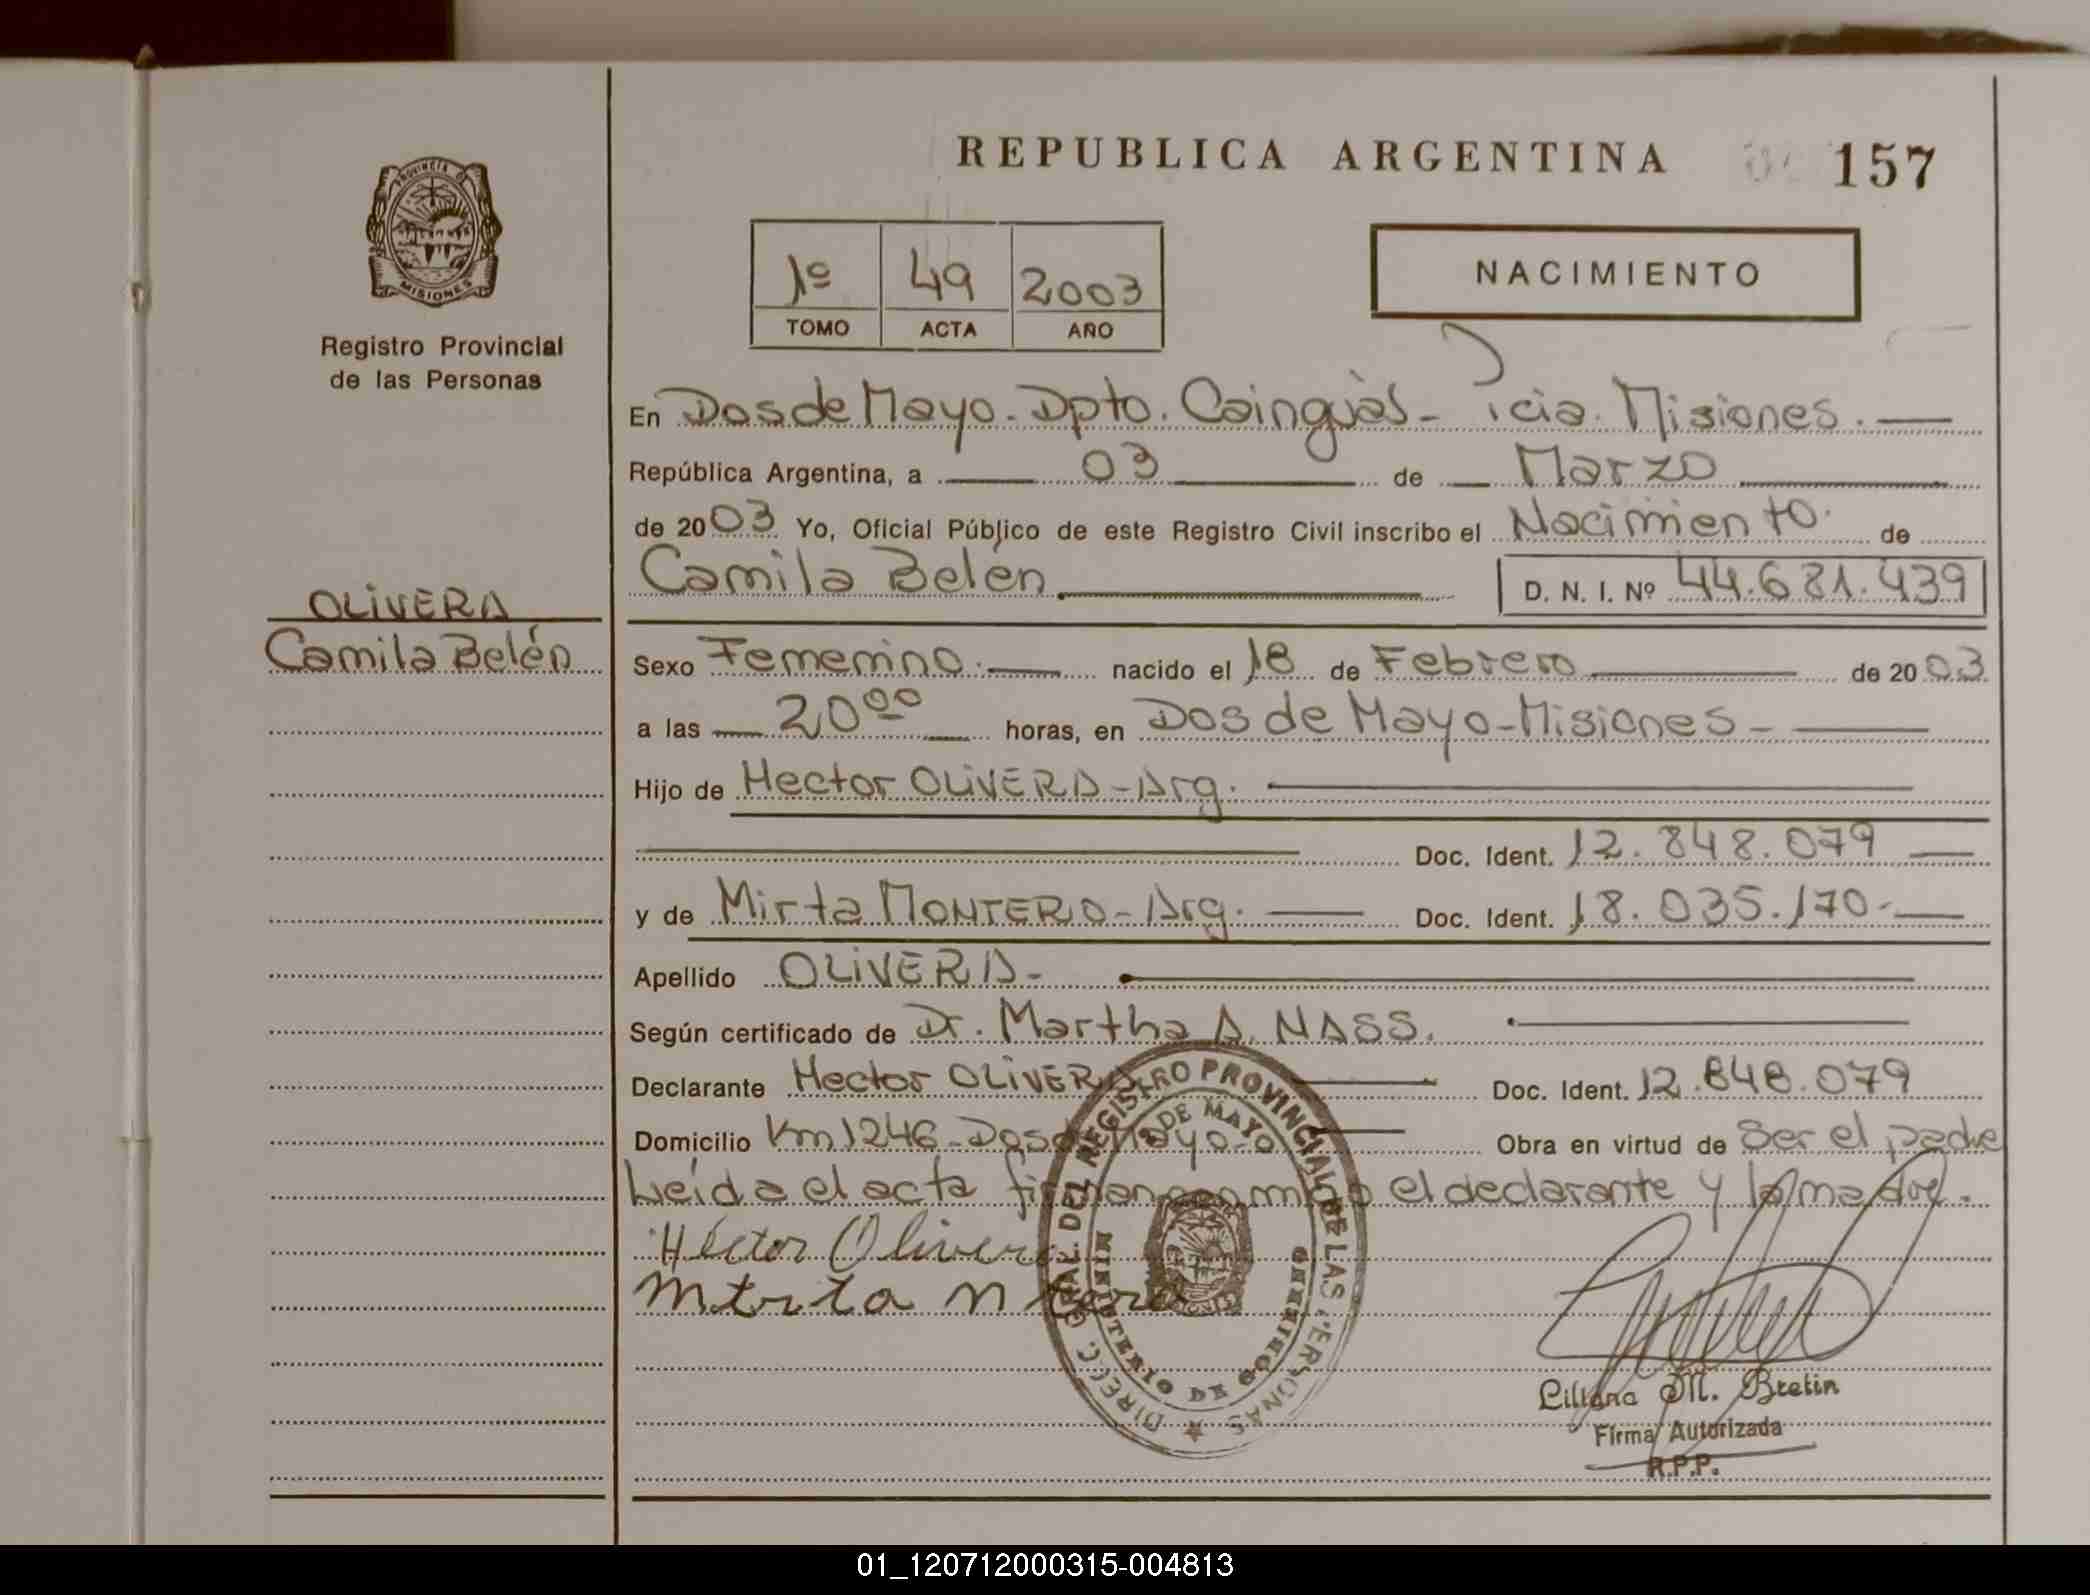 REPUBLICA ARGENTINA 157
PROVINCIA DE
MISIONES
Registro Provincial
de las Personas
1º 49 2003
TOMO ACTA AÑO
NACIMIENTO
En Dos de Mayo - Dpto. Cainguàs - cia. Misiones.
República Argentina, a 03 de Marzo
de 2003 Yo, Oficial Público de este Registro Civil inscribo el Nacimiento de
Camila Belén D. N. I. Nº 44.681.439
OLIVERA
Camila Belén
Sexo Femenino. nacido el 18 de Febrero de 2003
a las 20⁰⁰ horas, en Dos de Mayo - Misiones -
Hijo de Hector OLIVERA - Arg.
Doc. Ident. 12.848.079
y de Mirta MONTERO - Arg. Doc. Ident. 18.035.170-
Apellido OLIVERA -
Según certificado de Dr. Martha A. NASS.
Declarante Hector OLIVERA Doc. Ident. 12.848.079
Domicilio Km 1246 - Dos de Mayo - Obra en virtud de Ser el padre
Leída el acta firman conmigo el declarante y la madre.
Héctor Olivera
DIRECC. GRAL. DEL REGISTRO PROVINCIAL DE LAS PERSONAS
2 DE MAYO
MINISTERIO DE GOBIERNO
Liliana M. Bretin
Firma Autorizada
R.P.P.
01_120712000315-004813